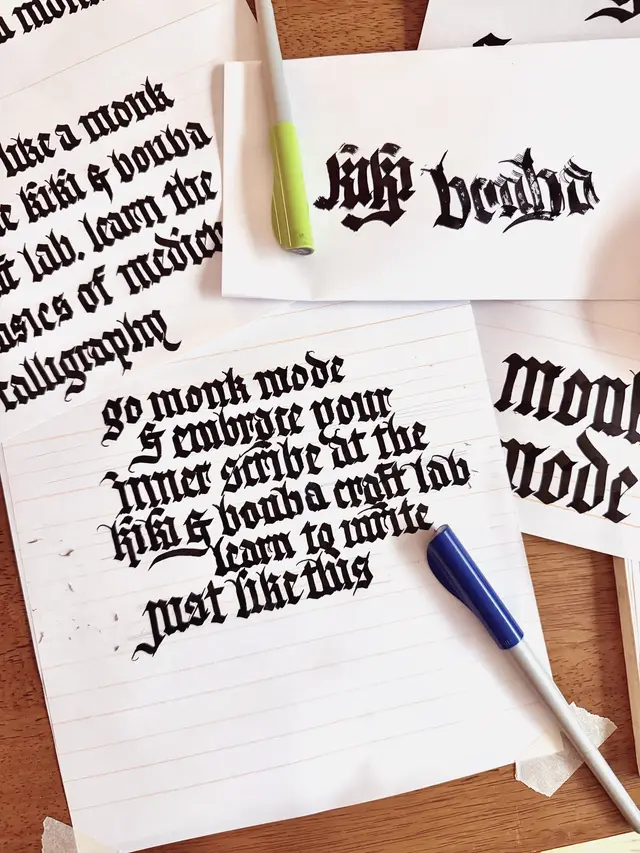 like a monk
kiki & bouba
lab. learn the
of
calligraphy
kiki bouba
go monk mode
& embrace your
inner scribe at the
kiki & bouba craft lab
learn to write
just like this
mode